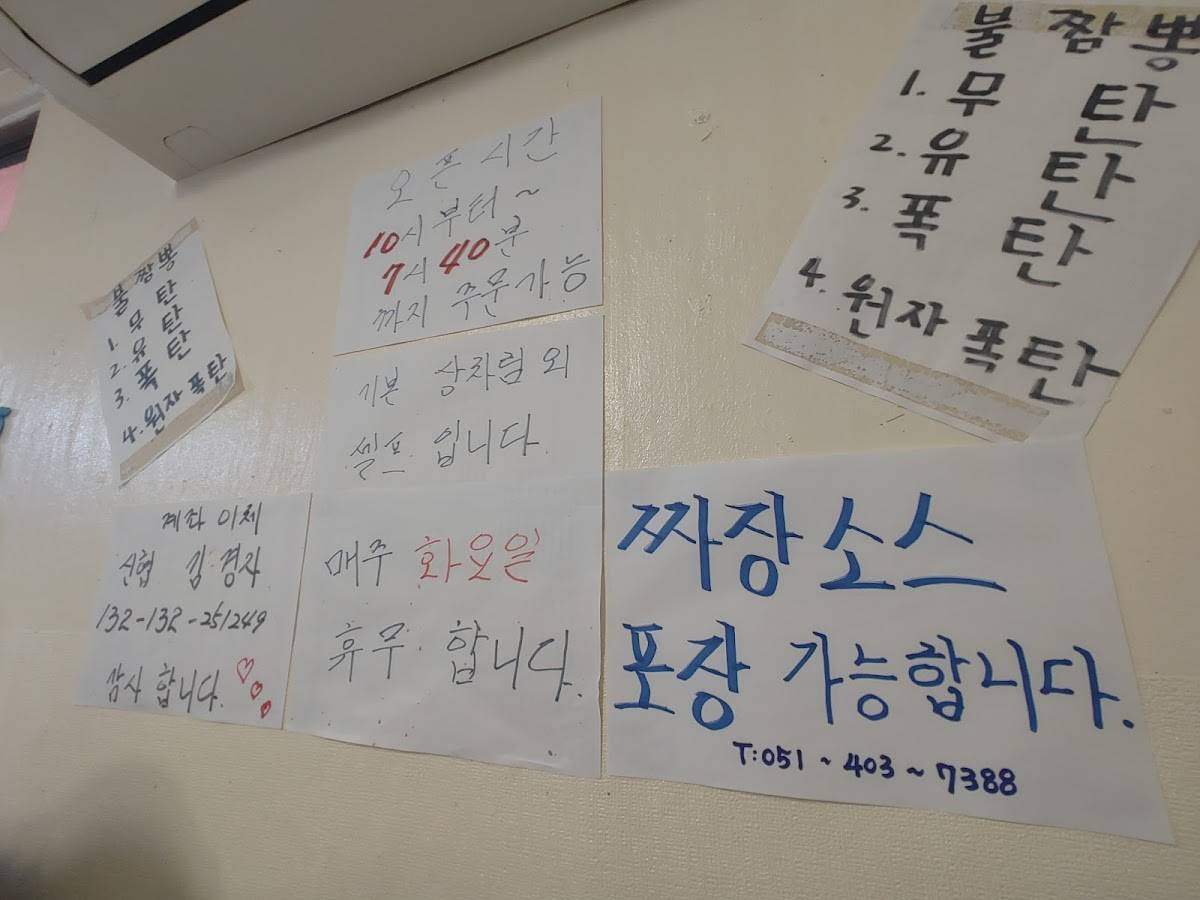 불짬뽕
1. 무 탄
2. 유 탄
3. 폭 탄
4. 원자 폭탄
오픈 시간
10시부터~
7시 40분
까지 주문가능
기본 상차림 외
셀프 입니다.
계좌 이체
신협 김경자
132-132-251249
감사 합니다.
매주 화요일
휴무 합니다.
불짬뽕
1. 무 탄
2. 유 탄
3. 폭 탄
4. 원자 폭탄
짜장소스
포장 가능합니다.
T:051~403~7388